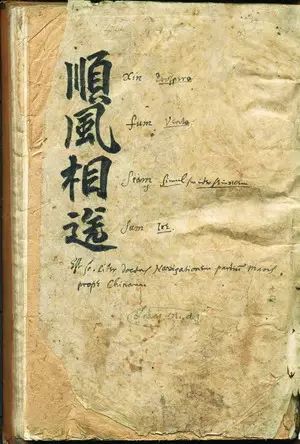 順風相送
Xin prospero
fum Vento
Siam simul
Sam ire
sc. Liber docens Navigationem partium Maris
prope Chinam